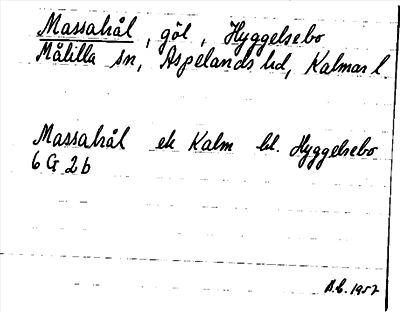 Massahål, göl, Hyggelsebo
Målilla sn, Aspelands hd, Kalmar l.
Massahål ek Kalm bl. Hyggelsebo
6 G 2 b
1957